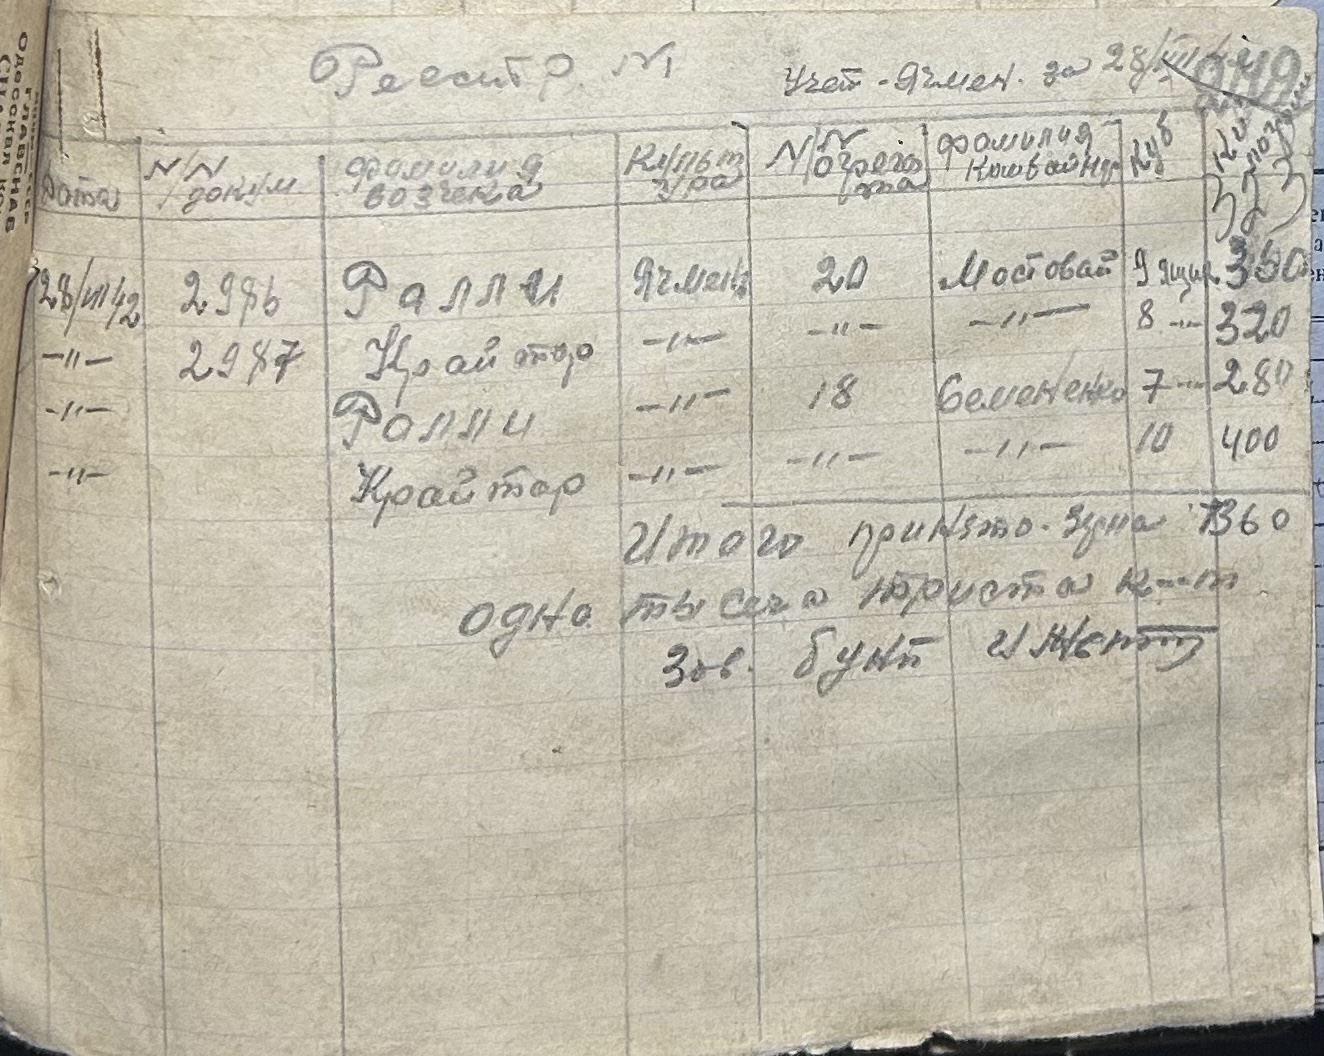 Реестр. N1
Учет - Ячмен. за 28/VII
Дата N/N докум фамилия возчека Культ ура N/N агрега та фамилия Комбайнер Куб
323
28/VII 42 2986 Ралли Ячмень 20 Мостовай 9 ящик. 360
-"- 2987 Крайтор -"- -"- -"- 8 -"- 320
-"- Ралли -"- 18 Семененко 7 -"- 280
-"- Крайтор -"- -"- -"- 10 400
Итого принято. зерна 1360
одна тысеча триста
Зав. бунт